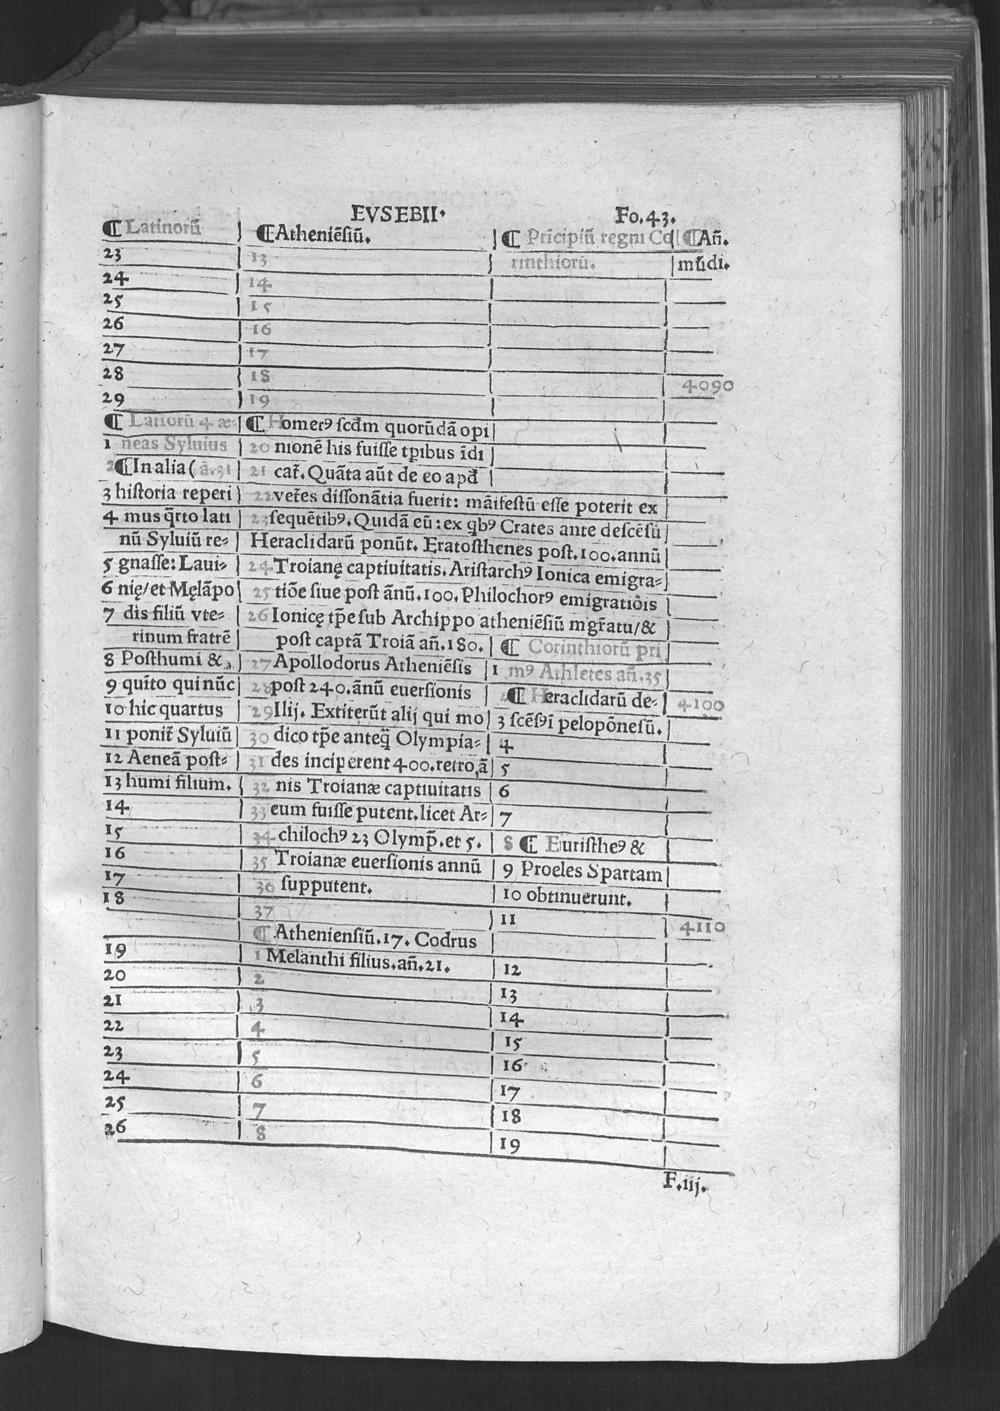 EVSEBII. Fo.43.
¶ Latinorū ¶ Atheniēsiū. ¶ Prīcipiū regni Co ¶ Añ.
23 13 rinthiorū. mūdi.
24 14
25 15
26 16
27 17
28 18 4090
29 19
¶ Latiorū 4 æ- ¶ Homerꝰ scd̄m quorūdā opi
1 neas Syluius 20 nionē his fuisse tp̄ibus īdi
2 ¶ In alia (ā.31 21 cat̄. Quāta aūt de eo apd̄
3 historia reperi 22 vet̄es dissonātia fuerit: māifestū esse poterit ex
4 mus q̄rto lati 23 sequētibꝰ. Quidā eū: ex qbꝰ Crates ante descēsū
nū Syluiū re- Heraclidarū ponūt. Eratosthenes post.100.annū
5 gnasse: Laui- 24 Troianę captiuitatis. Aristarchꝰ Ionica emigra-
6 nię/et Męlāpo 25 tiōe siue post ānū.100. Philochorꝰ emigratiōis
7 dis filiū vte- 26 Ionicę tp̄e sub Archippo atheniēsiū mgr̄atu/&
rinum fratrē post captā Troiā añ.180. ¶ Corinthiorū pri
8 Posthumi & 27 Apollodorus Atheniēsis 1 mꝰ Athletes añ.35
9 quīto qui nūc 28 post 240.ānū euersionis 2 ¶ Heraclidarū de- 4100
10 hic quartus 29 Ilij. Extiterūt alij qui mo 3 scēsꝰī pelopōnesū.
11 ponit̄ Syluiū 30 dico tp̄e anteq̄ Olympia- 4
12 Aeneā post- 31 des inciperent 400.retro,ā 5
13 humi filium. 32 nis Troianæ captiuitatis 6
14 33 eum fuisse putent.licet Ar- 7
15 34 chilochꝰ 23 Olymp̄.et 5. 8 ¶ Euristheꝰ &
16 35 Troianæ euersionis annū 9 Proeles Spartam
17 36 supputent. 10 obtinuerunt.
18 37 11 4110
¶ Atheniensiū.17. Codrus
19 1 Melanthi filius.añ.21. 12
20 2 13
21 3 14
22 4 15
23 5 16
24 6 17
25 7 18
26 8 19
F.iij.